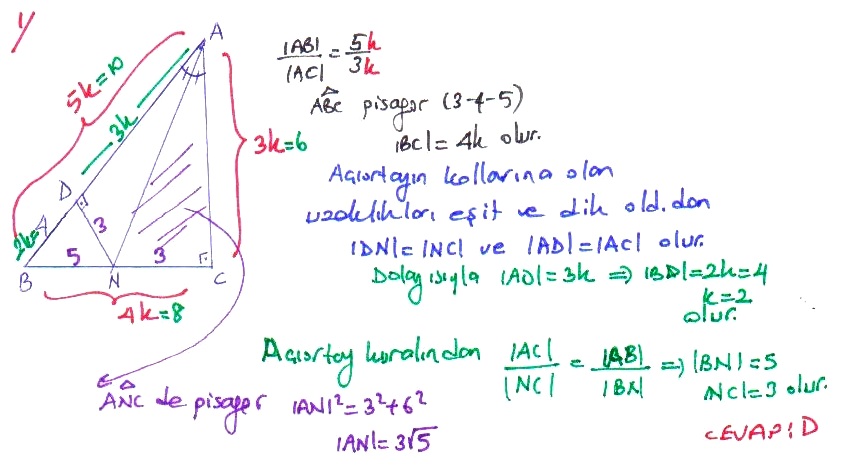 1/
A
5k=10
3k
3k=6
D
2k=4
3
5
3
B
N
C
4k=8
|AB|/|AC| = 5k/3k
ABC pisagor (3-4-5)
|BC|=4k olur.
Açıortayın kollarına olan
uzaklıkları eşit ve dik old.dan
|DN|=|NC| ve |AD|=|AC| olur.
Dolayısıyla |AD|=3k ⇒ |BD|=2k=4
k=2
olur.
Açıortay kuralından |AC|/|NC| = |AB|/|BN| ⇒ |BN|=5
|NC|=3 olur.
ANC de pisagor |AN|²=3²+6²
|AN|=3√5
CEVAP: D